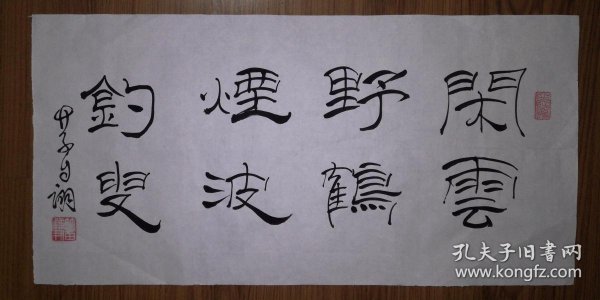 閑雲
野鶴
煙波
釣叟
孔夫子旧书网
www.kongfz.com